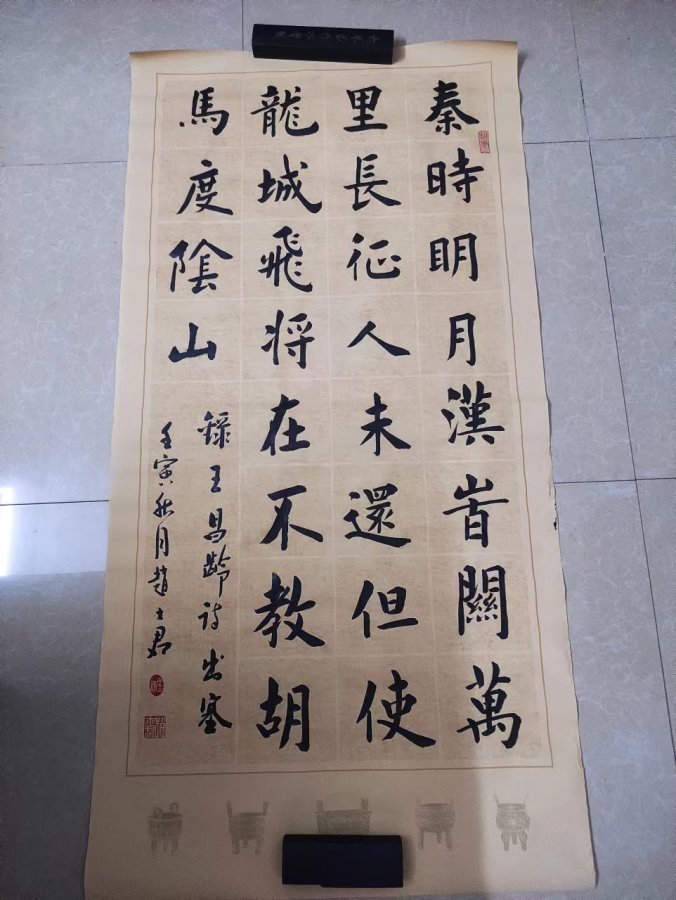 秦時明月漢峕關萬
里長征人未還但使
龍城飛将在不教胡
馬度陰山
錄王昌齡诗出塞
壬寅秋月趙士君